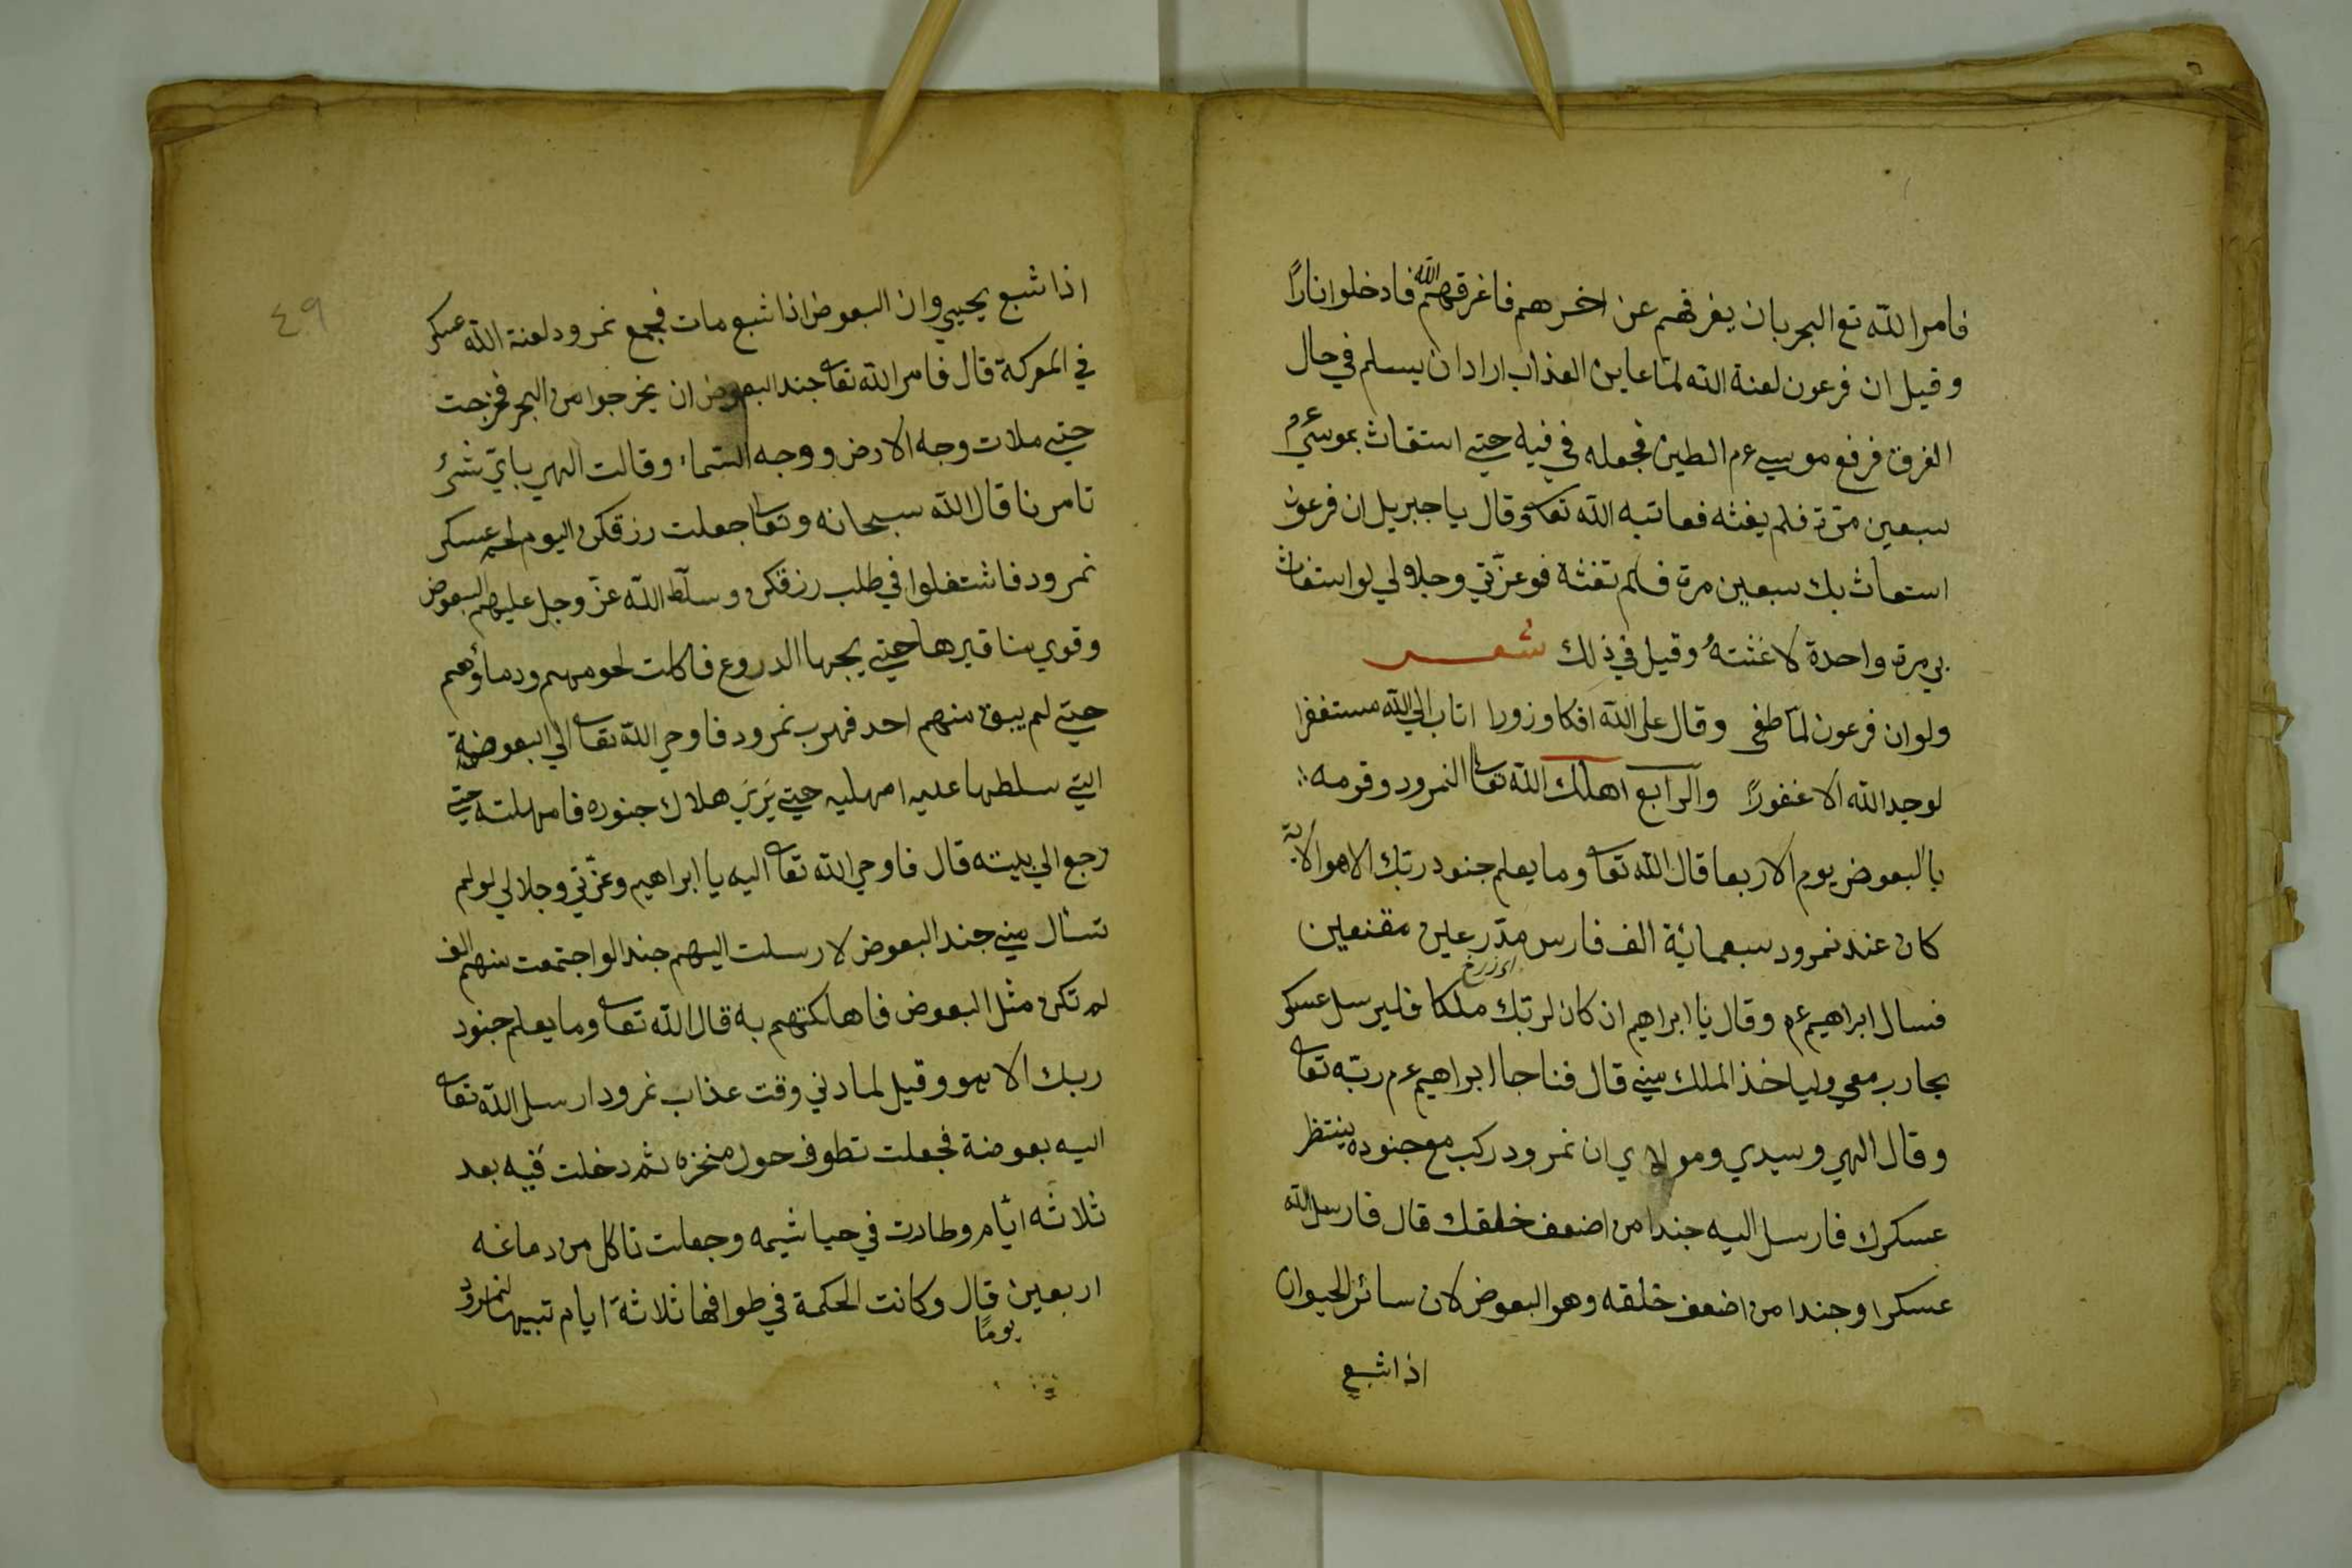 فامر الله تع البحر بان يغرقهم عن اخرهم فاغرقهم الله فادخلوا نارًا
وقيل ان فرعون لعنة الله لمّا عاين العذاب اراد ان يسلم في حال
الغرق فرفع موسي عم الطين فجعله في فيه حتي استغاث بموسي عم
سبعين مرّة فلم يغثه فعاتبه الله تعا وقال يا جبريل ان فرعون
استغاث بك سبعين مرة فلم تغثه فوعزّتي وجلالي لو استغاث
بي مرة واحدة لاغثتهُ وقيل في ذلك شعر
ولو ان فرعون لمّا طغي وقال علي الله افكا وزورا اتاب الي الله مستغفرا
لوجد الله الا غفورًا والرابع اهلك الله تعا النمرود وقومه
بالبعوض يوم الاربعا قال الله تعا وما يعلم جنود ربّك الا هو الاية
كان عند نمرود سبعمائة الف فارس مدّرعين مقنعين
فسال ابراهيم عم وقال يا ابراهيم ان كان لربّك ملكا فليرسل عسكر
يحارب معي ولياخذ الملك مني قال فناجا ابراهيم عم ربّه تعا
وقال الهي وسيدي ومولاي ان نمرود ركب مع جنوده ينتظر
عسكرك فارسل اليه جندا من اضعف خلقك قال فارسل الله
عسكرا وجندا من اضعف خلقه وهو البعوض لان سائر الحيوان
اذا شبع
٤٩
اذا شبع يحيي وان البعوض اذا شبع مات فجمع نمرود لعنة الله عسكر
في المعركة قال فامر الله تعا جند البعوض ان يخرجوا من البحر فخرجت
حتي ملات وجه الارض ووجه السّماء وقالت الهي بايّ شئ
تامرنا قال الله سبحانه وتعا جعلت رزقكن اليوم لحم عسكر
نمرود فاشتغلوا في طلب رزقكن وسلّط الله عزّ وجل عليهم البعوض
وقوي مناقيرها حتي يجرها الدروع فاكلت لحومهم ودماؤهم
حتي لم يبق منهم احد فهرب نمرود فاوحي الله تعا الي البعوضة
التي سلطها عليه امهليه حتي يَرَيَ هلاك جنوده فامهلته حتي
رجع الي بيته قال فاوحي الله تعا اليه يا ابراهيم وعزّتي وجلالي لو لم
تسأل مني جند البعوض لارسلت اليهم جندا لو اجتمعت منهم الف
لم تكن مثل البعوض فاهلكتهم به قال الله تعا وما يعلم جنود
ربك الا هو وقيل لما دني وقت عذاب نمرود ارسل الله تعا
اليه بعوضة فجعلت تطوف حول منخره ثم دخلت فيه بعد
ثلاثه ايّام وطارت في خياشيمه وجعلت تاكل من دماغه
اربعين يومًا قال وكانت الحكمة في طوافها ثلاثة ايام تنبيها لنمرود